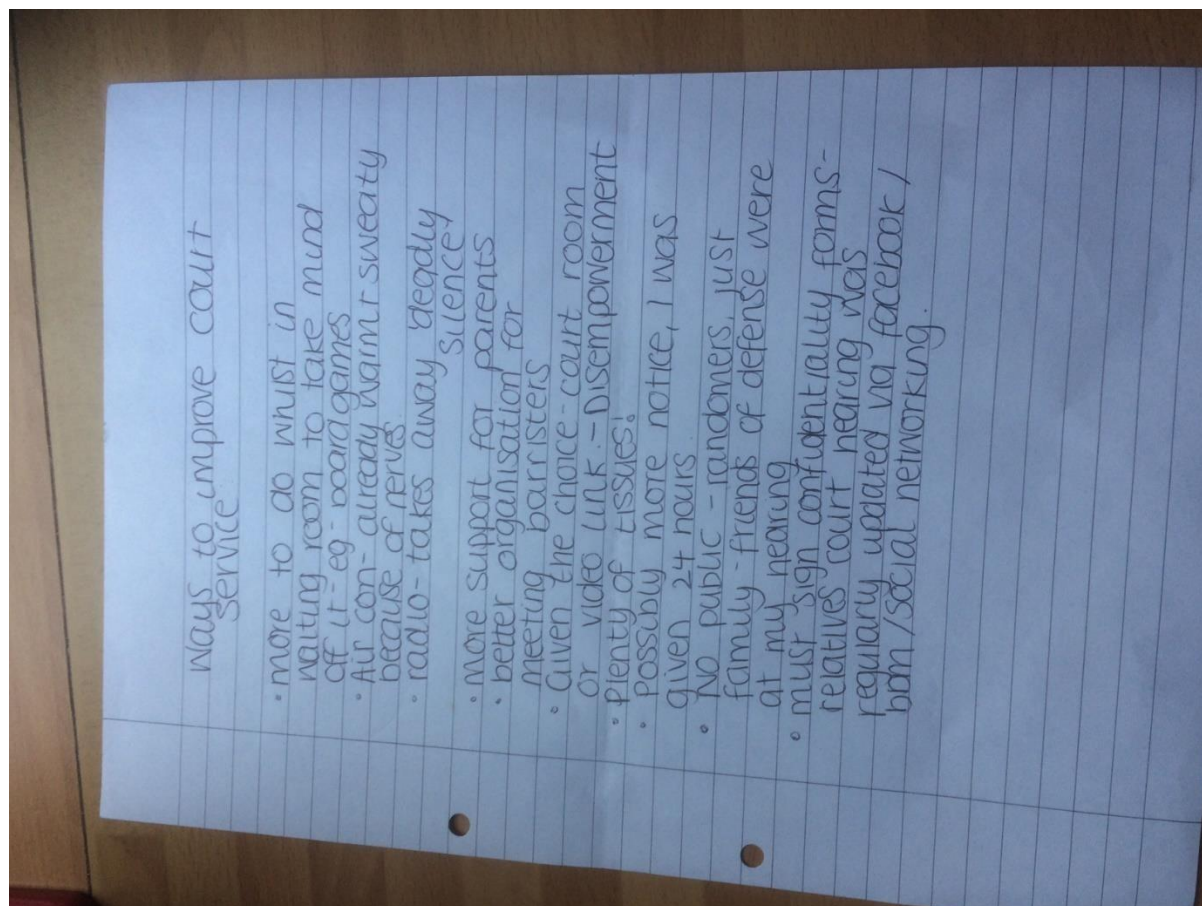 Ways to improve court
service
• more to do whilst in
waiting room to take mind
off it - eg - board games
• Air con - already warm + sweaty
because of nerves
• radio - takes away 'deadly
silence'
• more support for parents
• better organisation for
meeting barristers
• Given the choice - court room
or video link. - Disempowerment
• Plenty of tissues!
• Possibly more notice, I was
given 24 hours
• No public - randomers, just
family - friends of defense were
at my hearing
• must sign confidentiality forms -
relatives court hearing was
regularly updated via facebook /
bbm / social networking.